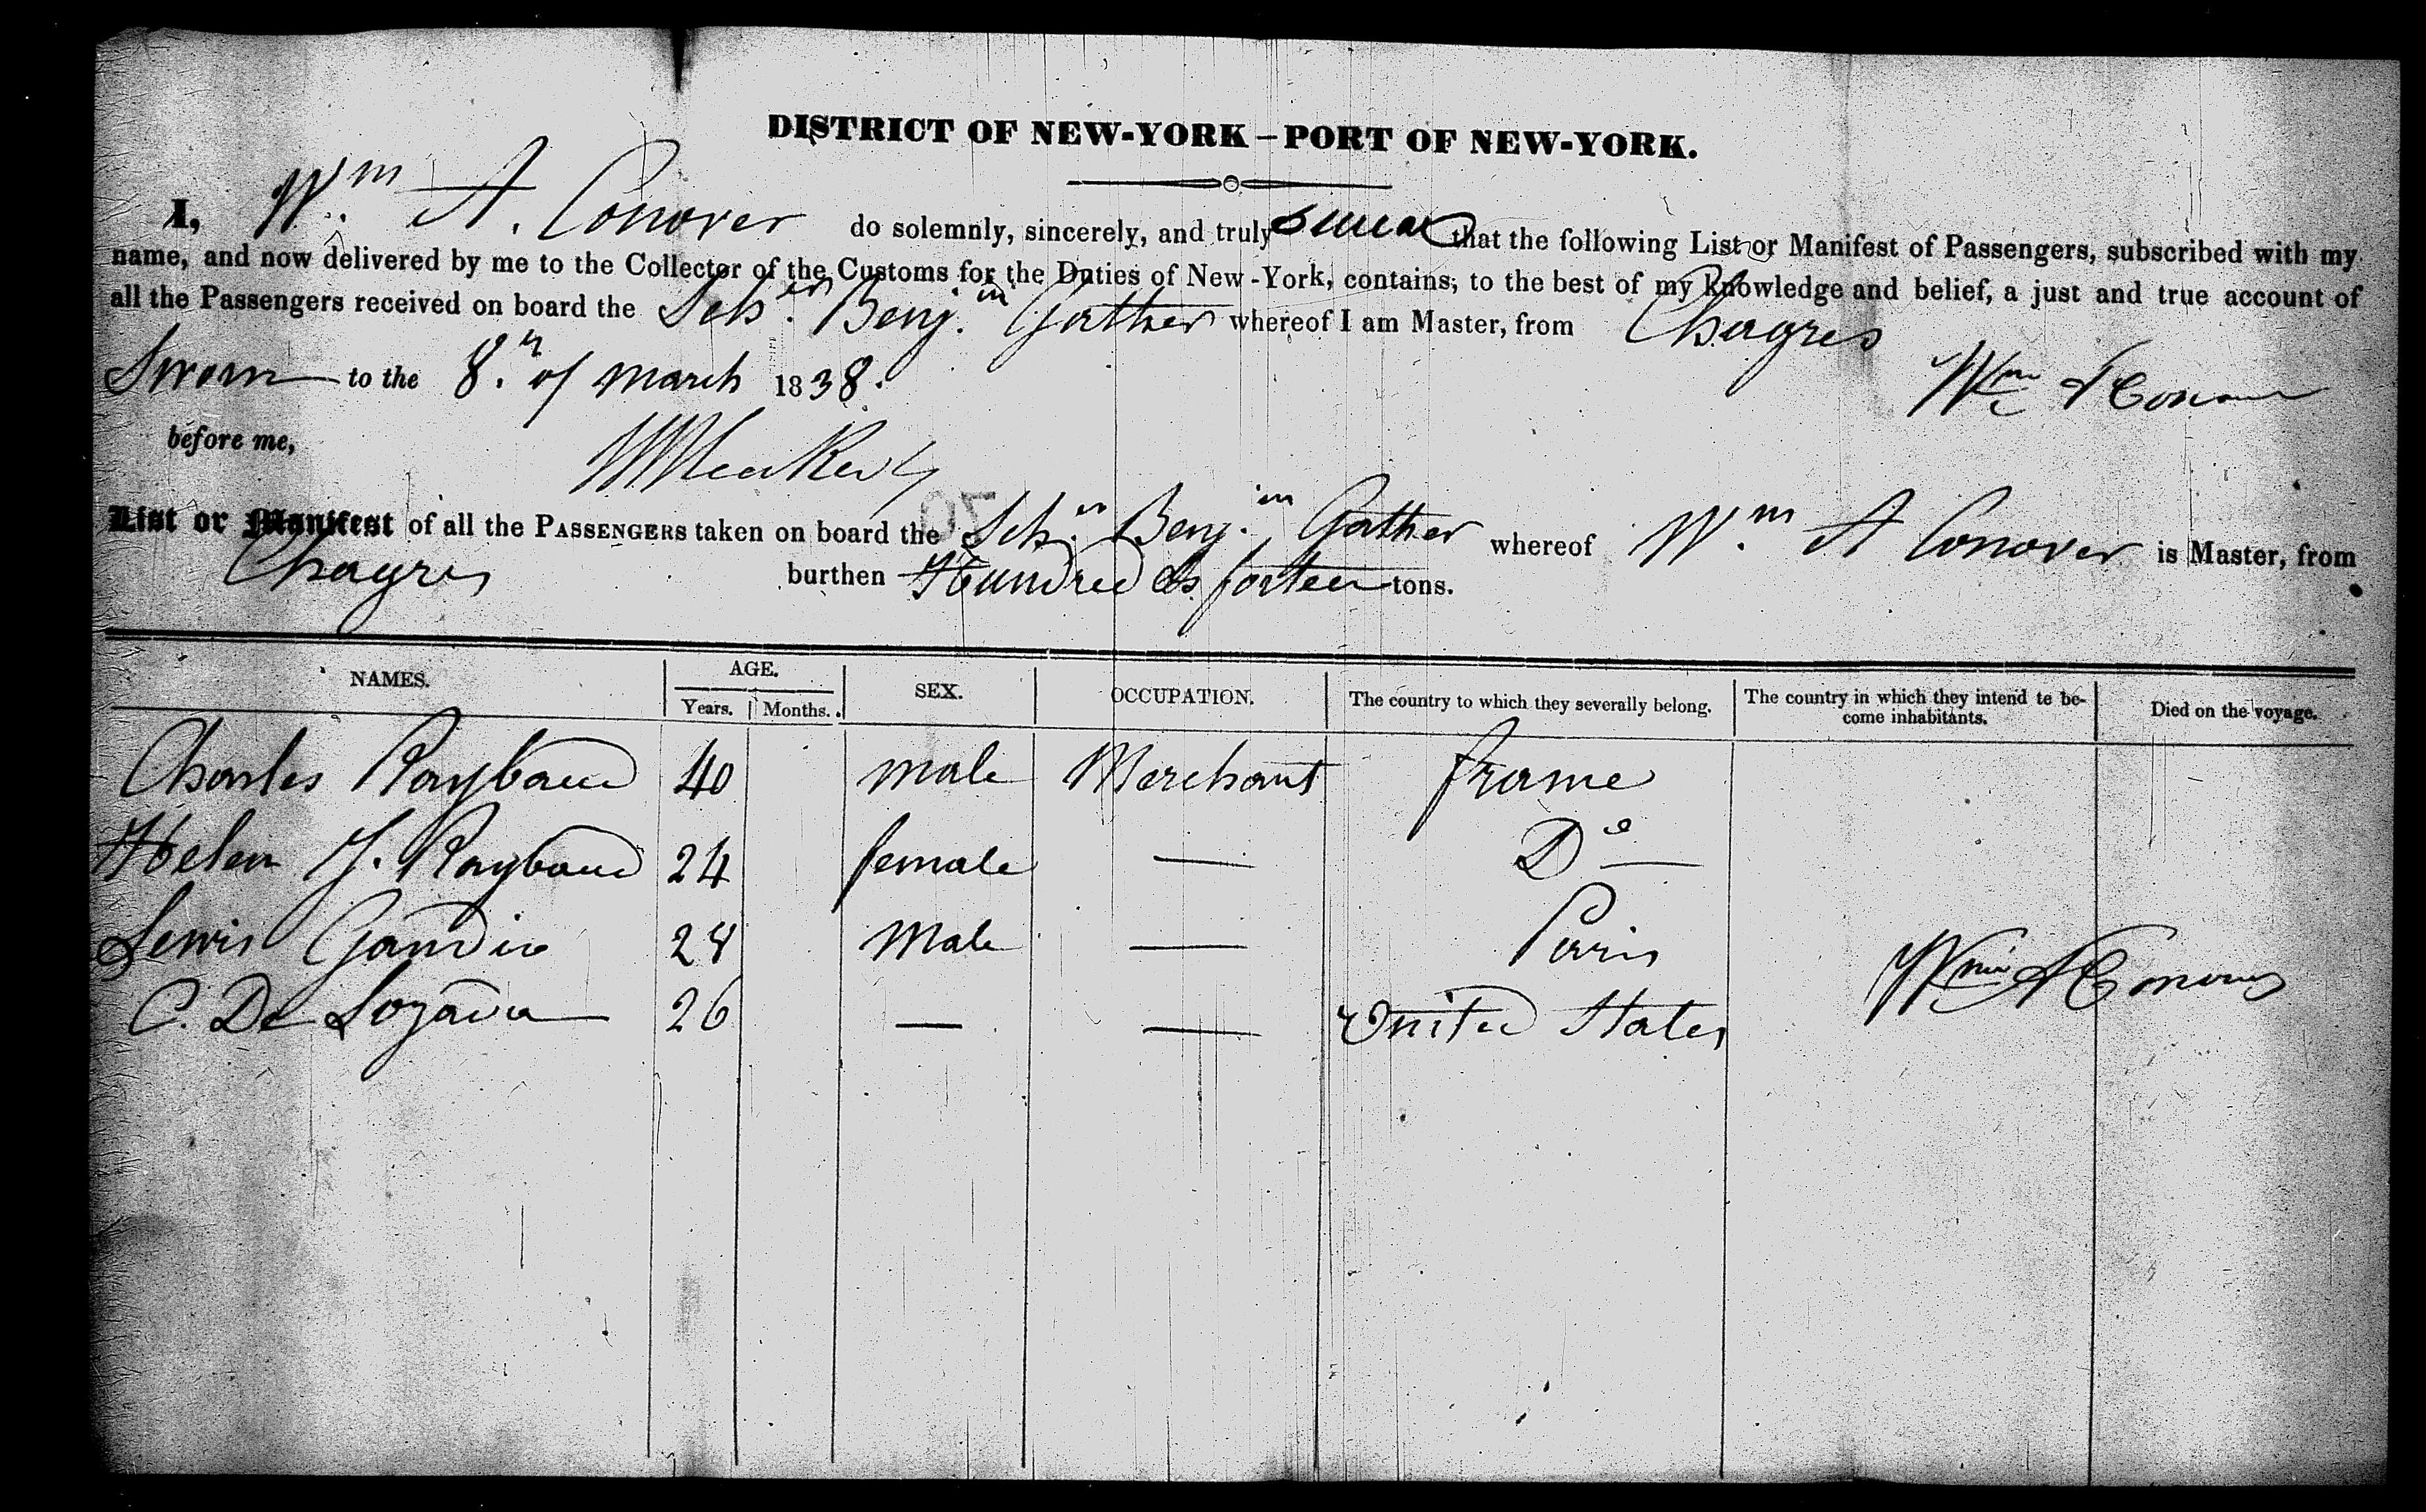 DISTRICT OF NEW-YORK – PORT OF NEW-YORK.
I, Wm. A. Conover do solemnly, sincerely, and truly swear that the following List or Manifest of Passengers, subscribed with my
name, and now delivered by me to the Collector of the Customs for the Duties of New-York, contains, to the best of my knowledge and belief, a just and true account of
all the Passengers received on board the Schr. Benj.in Gather whereof I am Master, from Chagres
Sworn to the 8.th of March 1838.
Wm A Conover
before me,
List or Manifest of all the PASSENGERS taken on board the Schr. Benj.in Gather whereof Wm. A Conover is Master, from
Chagres burthen Hundred & forteen tons.
NAMES. AGE. SEX. OCCUPATION. The country to which they severally belong. The country in which they intend te be-
Years. Months. come inhabitants. Died on the voyage.
Charles Raybaud 40 male Merchant france
Helen Raybaud 24 female — Do —
Lewis 28 Male — Paris
C. De Lozada 26 — — United States
Wm A Conover